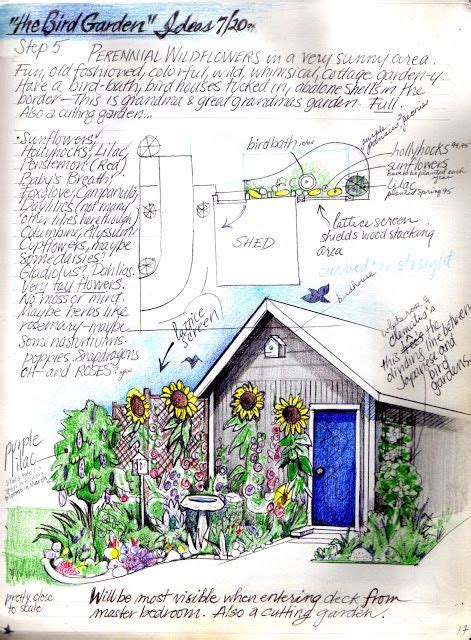 "The Bird Garden" Ideas 7/20 94
Step 5 PERENNIAL WILDFLOWERS in a very sunny area.
Fun, old fashioned, colorful, wild, whimsical, cottage garden-y.
Have a bird-bath, bird houses tucked in, abalone shells in the
border — This is grandma & great grandmas garden. Full.
Also a cutting garden...
• Sunflowers,
Hollyhocks, Lilac,
Penstemon (Red)
Baby's Breath,
Foxglove, Campanula,
Daylilies (not many
other lilies here though)
Columbine, Alyssum,
Cupflowers, maybe
some daisies?
Gladiolus? Dahlias.
Very tall flowers.
No moss or mint.
Maybe herbs like
rosemary - maybe
Some nasturtiums.
poppies. Snapdragons
oh - and ROSES? yes
birdbath
purple
hollyhocks 94, 95
sunflowers
have to be planted each year
lilac
planted Spring 95
SHED
lattice screen
shields wood stacking
area
curved or straight
birdhouse
lattice
screen
clematis's
this the
dividing line
between
Japanese and
Bird
gardens.
purple
lilac
pretty close
to scale
Will be most visible when entering deck from
master bedroom. Also a cutting garden.
17